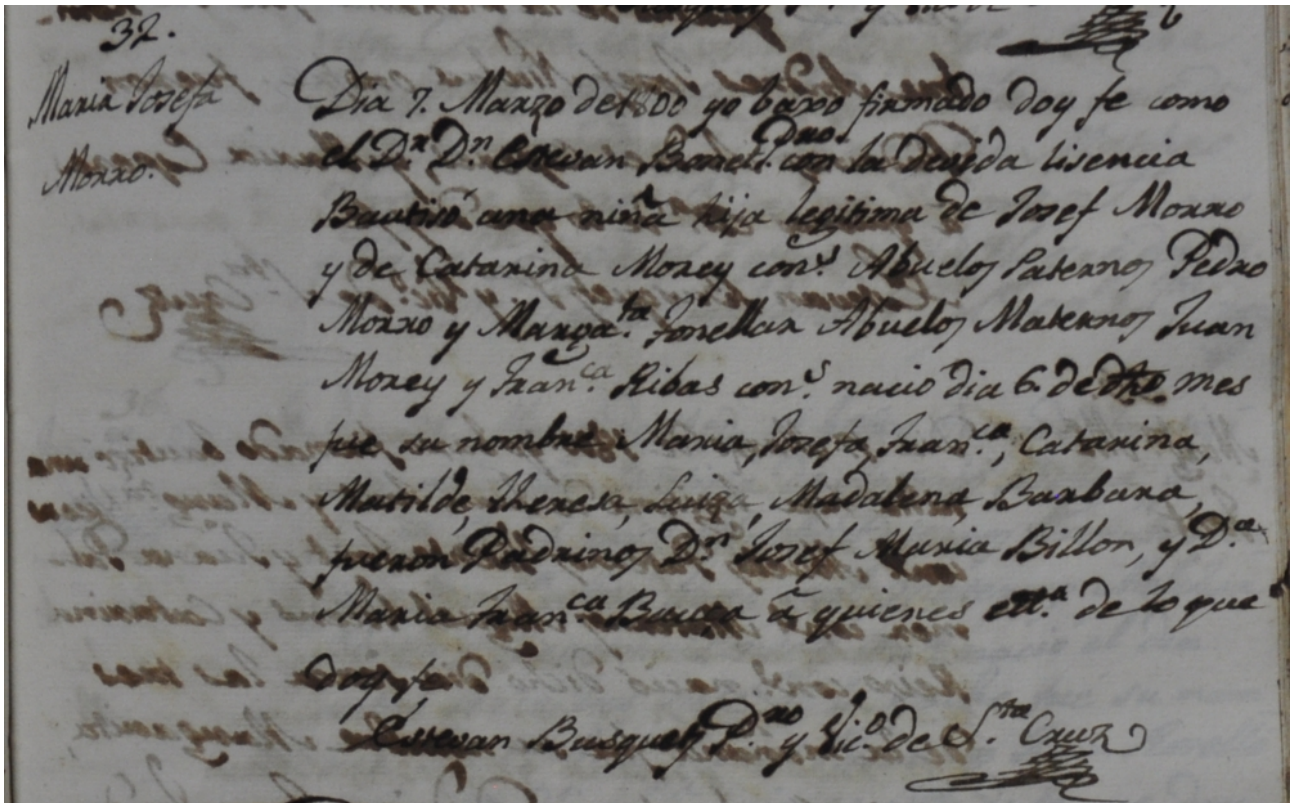 32.
Maria Josefa
Morro.
Dia 7. Marzo de 1800 yo baxo firmado doy fe como
el D.r D.n Estevan Bonet Pbro con la devida lisencia
Bautisó una niña hija legitima de Josef Morro
y de Catarina Morey con.s Abuelos Paternos Pedro
Morro y Marga.ta Fonellar Abuelos Maternos Juan
Morey y Fran.ca Ribas con.s nacio dia 6. de dho mes
fue su nombre Maria, Josefa, Fran.ca, Catarina,
Matilde, Theresa, Luisa, Madalena, Barbara,
fueron Padrinos D.n Josef Maria Billon, y D.a
Maria Fran.ca a quienes ett.a de lo que
doy fe
Estevan Busquets P.bro y Vic.o de S.ta Cruz